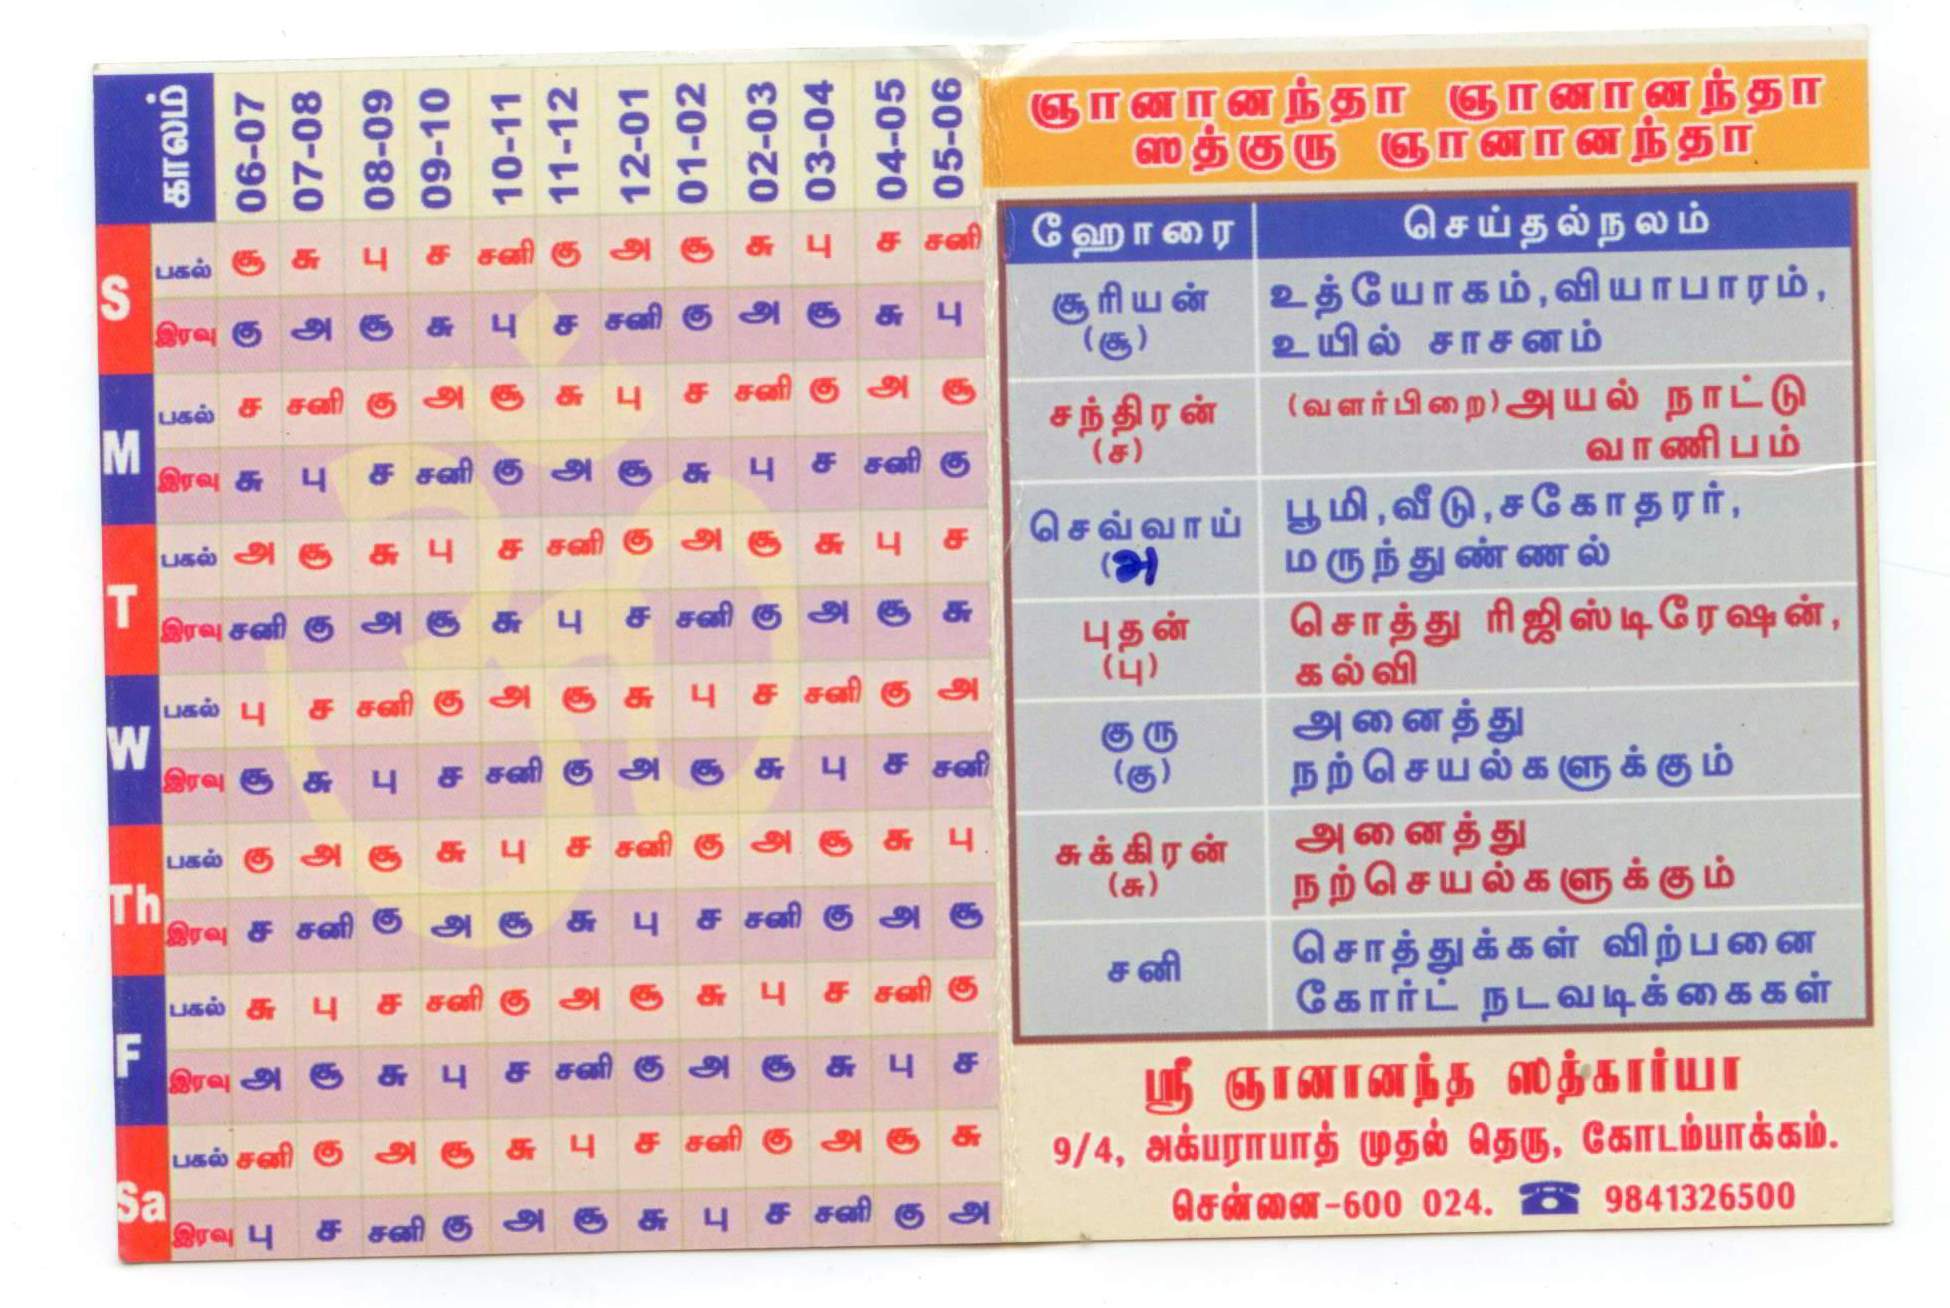 காலம் 06-07 07-08 08-09 09-10 10-11 11-12 12-01 01-02 02-03 03-04 04-05 05-06
S பகல் சூ சு பு ச சனி கு அ சூ சு பு ச சனி
இரவு கு அ சூ சு பு ச சனி கு அ சூ சு பு
M பகல் ச சனி கு அ சூ சு பு ச சனி கு அ சூ
இரவு சு பு ச சனி கு அ சூ சு பு ச சனி கு
T பகல் அ சூ சு பு ச சனி கு அ சூ சு பு ச
இரவு சனி கு அ சூ சு பு ச சனி கு அ சூ சு
W பகல் பு ச சனி கு அ சூ சு பு ச சனி கு அ
இரவு சூ சு பு ச சனி கு அ சூ சு பு ச சனி
Th பகல் கு அ சூ சு பு ச சனி கு அ சூ சு பு
இரவு ச சனி கு அ சூ சு பு ச சனி கு அ சூ
F பகல் சு பு ச சனி கு அ சூ சு பு ச சனி கு
இரவு அ சூ சு பு ச சனி கு அ சூ சு பு ச
Sa பகல் சனி கு அ சூ சு பு ச சனி கு அ சூ சு
இரவு பு ச சனி கு அ சூ சு பு ச சனி கு அ
ஞானானந்தா ஞானானந்தா
ஸத்குரு ஞானானந்தா
ஹோரை செய்தல்நலம்
சூரியன் உத்யோகம்,வியாபாரம்,
(சூ) உயில் சாசனம்
சந்திரன் (வளர்பிறை)அயல் நாட்டு
(ச) வாணிபம்
செவ்வாய் பூமி,வீடு,சகோதரர்,
(அ மருந்துண்ணல்
புதன் சொத்து ரிஜிஸ்டிரேஷன்,
(பு) கல்வி
குரு அனைத்து
(கு) நற்செயல்களுக்கும்
சுக்கிரன் அனைத்து
(சு) நற்செயல்களுக்கும்
சனி சொத்துக்கள் விற்பனை
கோர்ட் நடவடிக்கைகள்
ஸ்ரீ ஞானானந்த ஸத்கார்யா
9/4, அக்பராபாத் முதல் தெரு, கோடம்பாக்கம்.
சென்னை-600 024. ☎ 9841326500